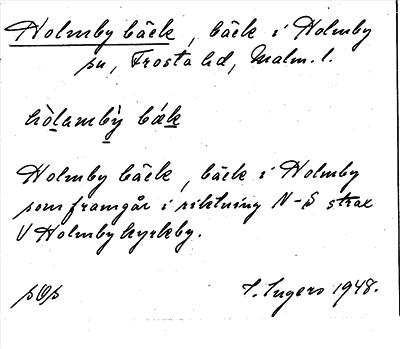 Holmby bäck, bäck i Holmby
sn, Frosta hd, Malm. l.
hòlambỳ bǽk
Holmby bäck, bäck i Holmby
som framgår i riktning N-S strax
V Holmby kyrkby.
I. Ingers 1948.